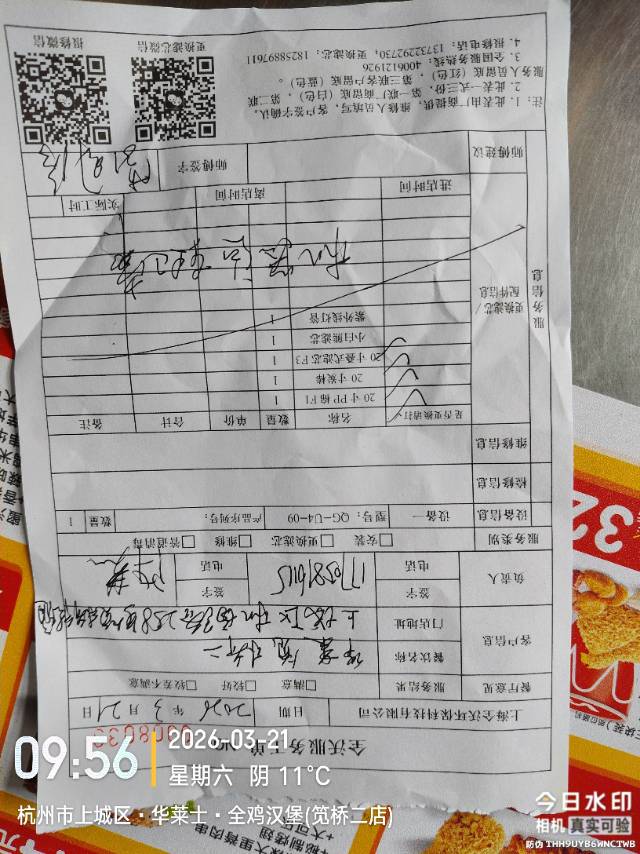 全沃服务工单
0018033
上海全沃环保科技有限公司 日期 2026年3月21日
餐厅意见 服务结果 □满意 □较好 □较差不满意
客户信息 餐饮名称 华莱士笕桥二
门店地址 上城区
负责人 签字 电话 签字 电话
服务类别 □安装 □更换滤芯 □维修 □管道消毒
设备信息 设备一 型号: QG-U4-09 产品序列号: 数量 1
检修信息
维修信息
服务信息 更换滤芯/配件信息 是否更换请打✓ 名称 数量 单价 合计 备注
✓ 20寸PP棉F1 1
✓ 20寸炭棒 1
✓ 20寸叠式滤芯F3 1
✓ 小白熊滤芯 1
紫外线灯管 1
进店时间 离店时间 实际工时
师傅建议 师傅签字
注: 1. 此表由厂商提供, 维修人员填写, 客户签字确认。
2. 此表一式三份, 第一联厂商留底(白色), 第二联服务人员留底(红色), 第三联客户留底(蓝色)。
3. 全国服务热线: 4006121926
4. 报修电话: 13732292730, 更换滤芯: 18258897611
更换滤芯微信 报修微信
09:56
2026-03-21
星期六 阴 11℃
杭州市上城区·华莱士·全鸡汉堡(笕桥二店)
今日水印
相机 真实可验
防伪 THH9UYB6WNCTWB
32